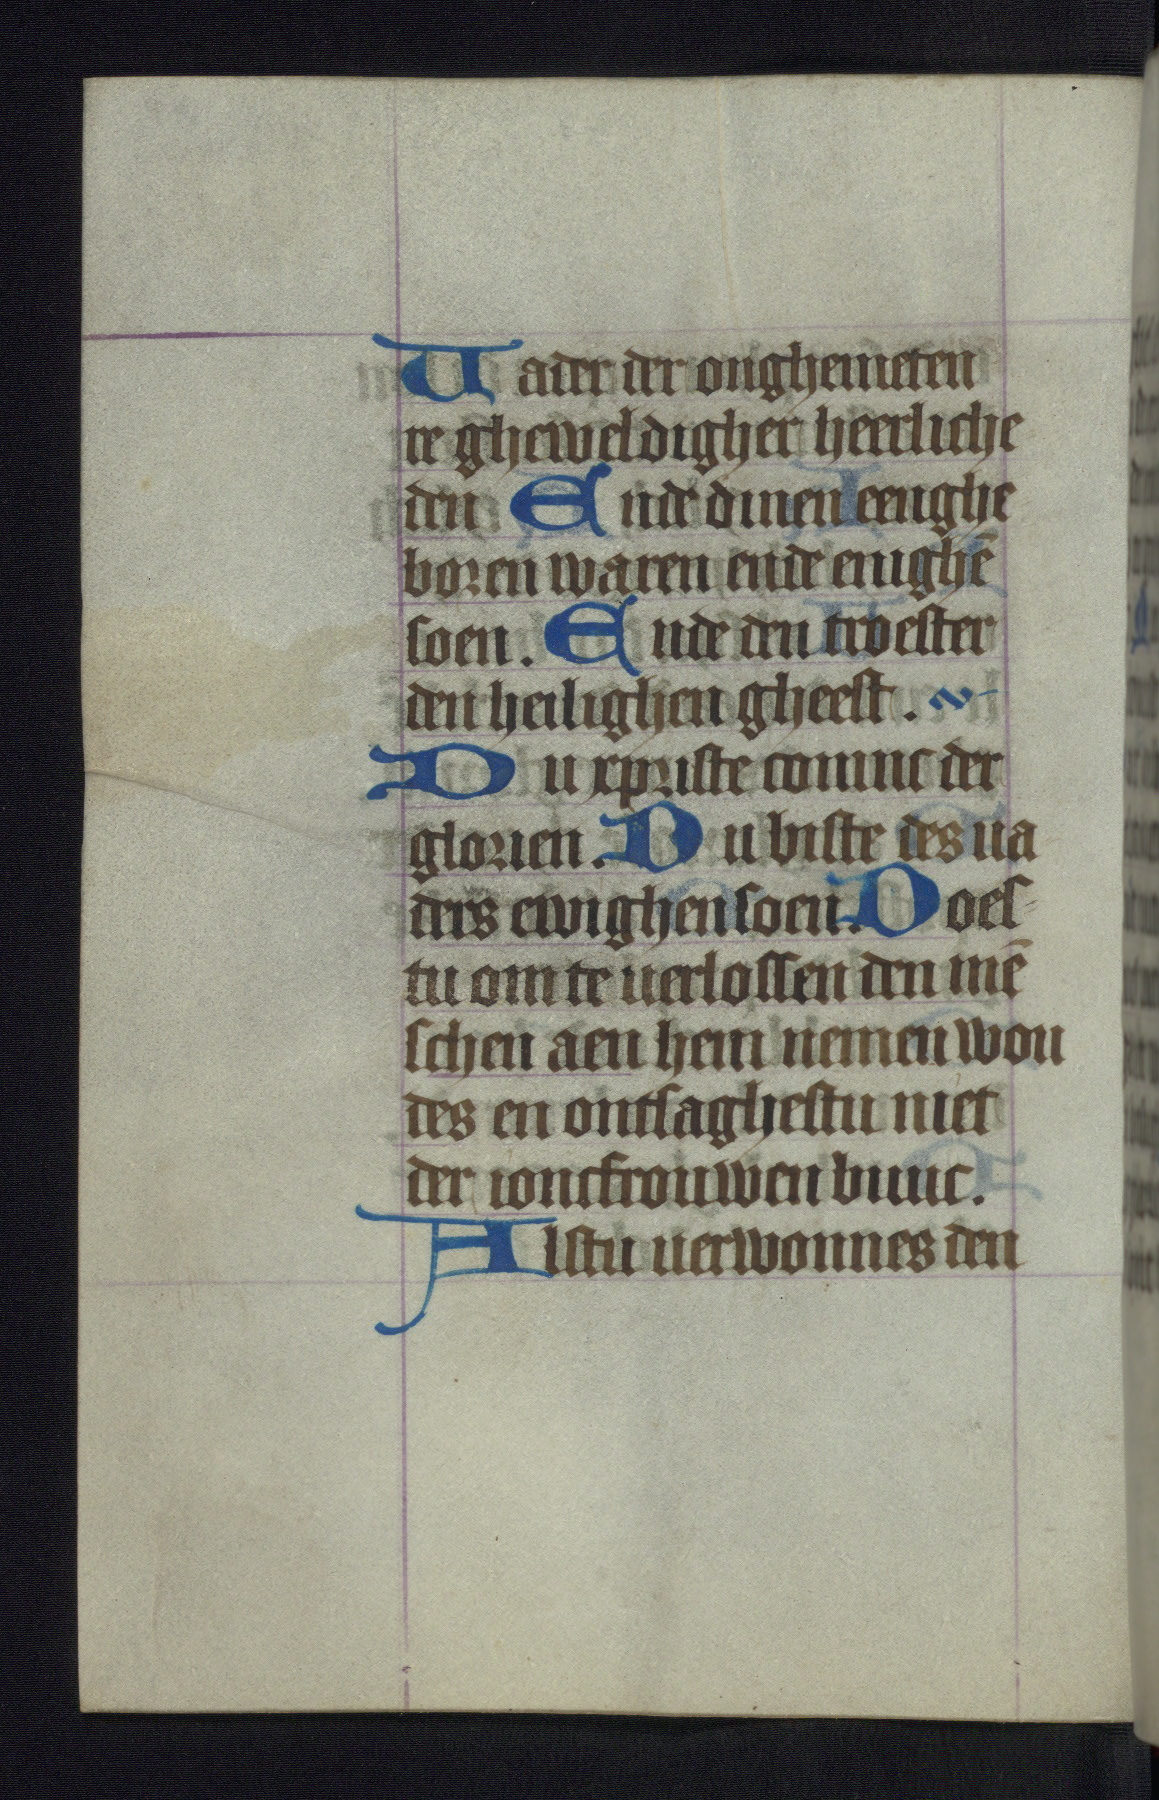 Uader der onghemeten
re gheweldigher heerliche
den Ende dinen eenghe
boren waren ende enighē
soen. Ende den troester
den heilighen gheest.
Du xpriste coninc der
glorien. Du biste des ua
ders ewighen soen. Does-
tu om te uerlossen den mē
schen aen hem nemen wou
des en ontsaghestu niet
der ioncfrouwen buuc.
Alstu uerwonnes den